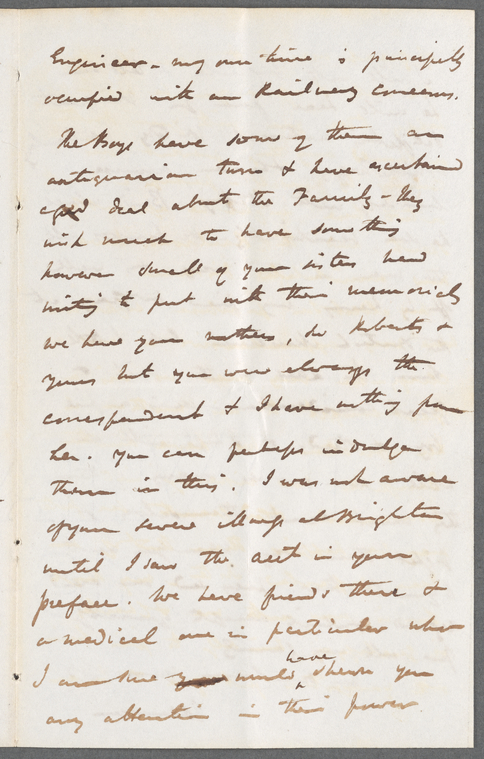 Engineer - my own time is principally
occupied with our Railway concerns.
The Boys have some of them an
antiquarian turn & have ascertained
a good deal about the Family - they
wish much to have something
however small of your sisters hand
writing to put with their memorials
we have your mothers, Roberts &
yours but you were always the
correspondent & I have nothing from
her. you can perhaps indulge
them in this. I was not aware
of your severe illness at Brighton
until I saw the acct in your
preface. We have friends there &
a medical one in particular who
I am sure would have shewn you
any attention in their power.